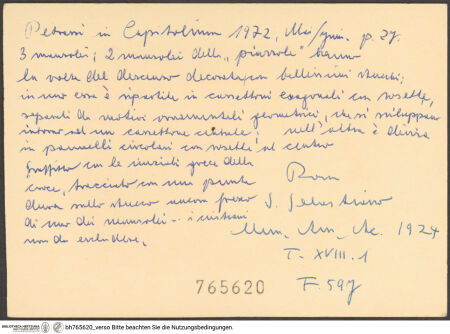 Petrassi in Capitolium 1972, Mai/giu. p. 27.
3 mausolei; 2 mausolei della „piazzola" hanno
la volta del descenso decorata con bellissimi stucchi;
in uno essa è ripartita in cassettoni esagonali con rosette,
separati da motivi ornamentali geometrici, che si sviluppano
intorno ad un cassettone centrale; nell'altra è divisa
in pannelli circolari con rosette al centro
graffito con le iniziali grece della
croce, tracciato con una punta
dura sullo stucco ancora fresco
di uno dei mausolei - i cristiani
non da escludere.
Rom
S. Sebastiano
Mem. Am. Ac. 1924
T. XVIII.1
F. 597
765620
bh765620_verso Bitte beachten Sie die Nutzungsbedingungen.